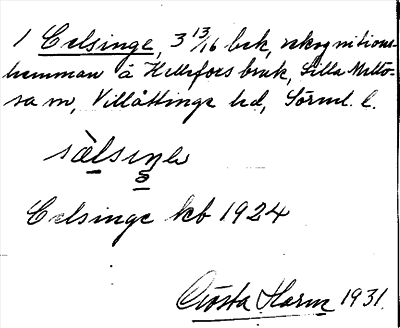 1 Celsinge, 3 13/16 bck, rekognitions-
hemman å Hellefors bruk, Lilla Mello-
sa sn, Villåttinge hd, Södml. l.
sàlsiŋə
Celsinge kb 1924
Gösta Harm 1931.